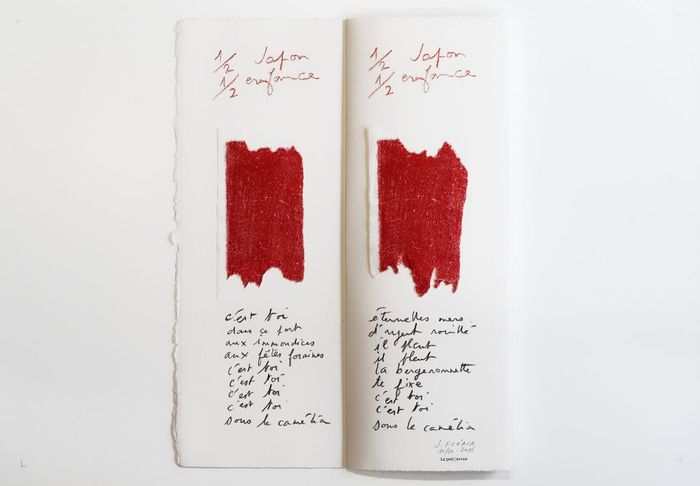 1/2 Japon
1/2 enfance
c'est toi
dans ce port
aux immondices
aux fêtes foraines
c'est toi
c'est toi
c'est toi
c'est toi
sous le camélia
1/2 Japon
1/2 enfance
éternelles mers
d'argent rouillé
il pleut
il pleut
la bergeronnette
te fixe
c'est toi
c'est toi
sous le camélia